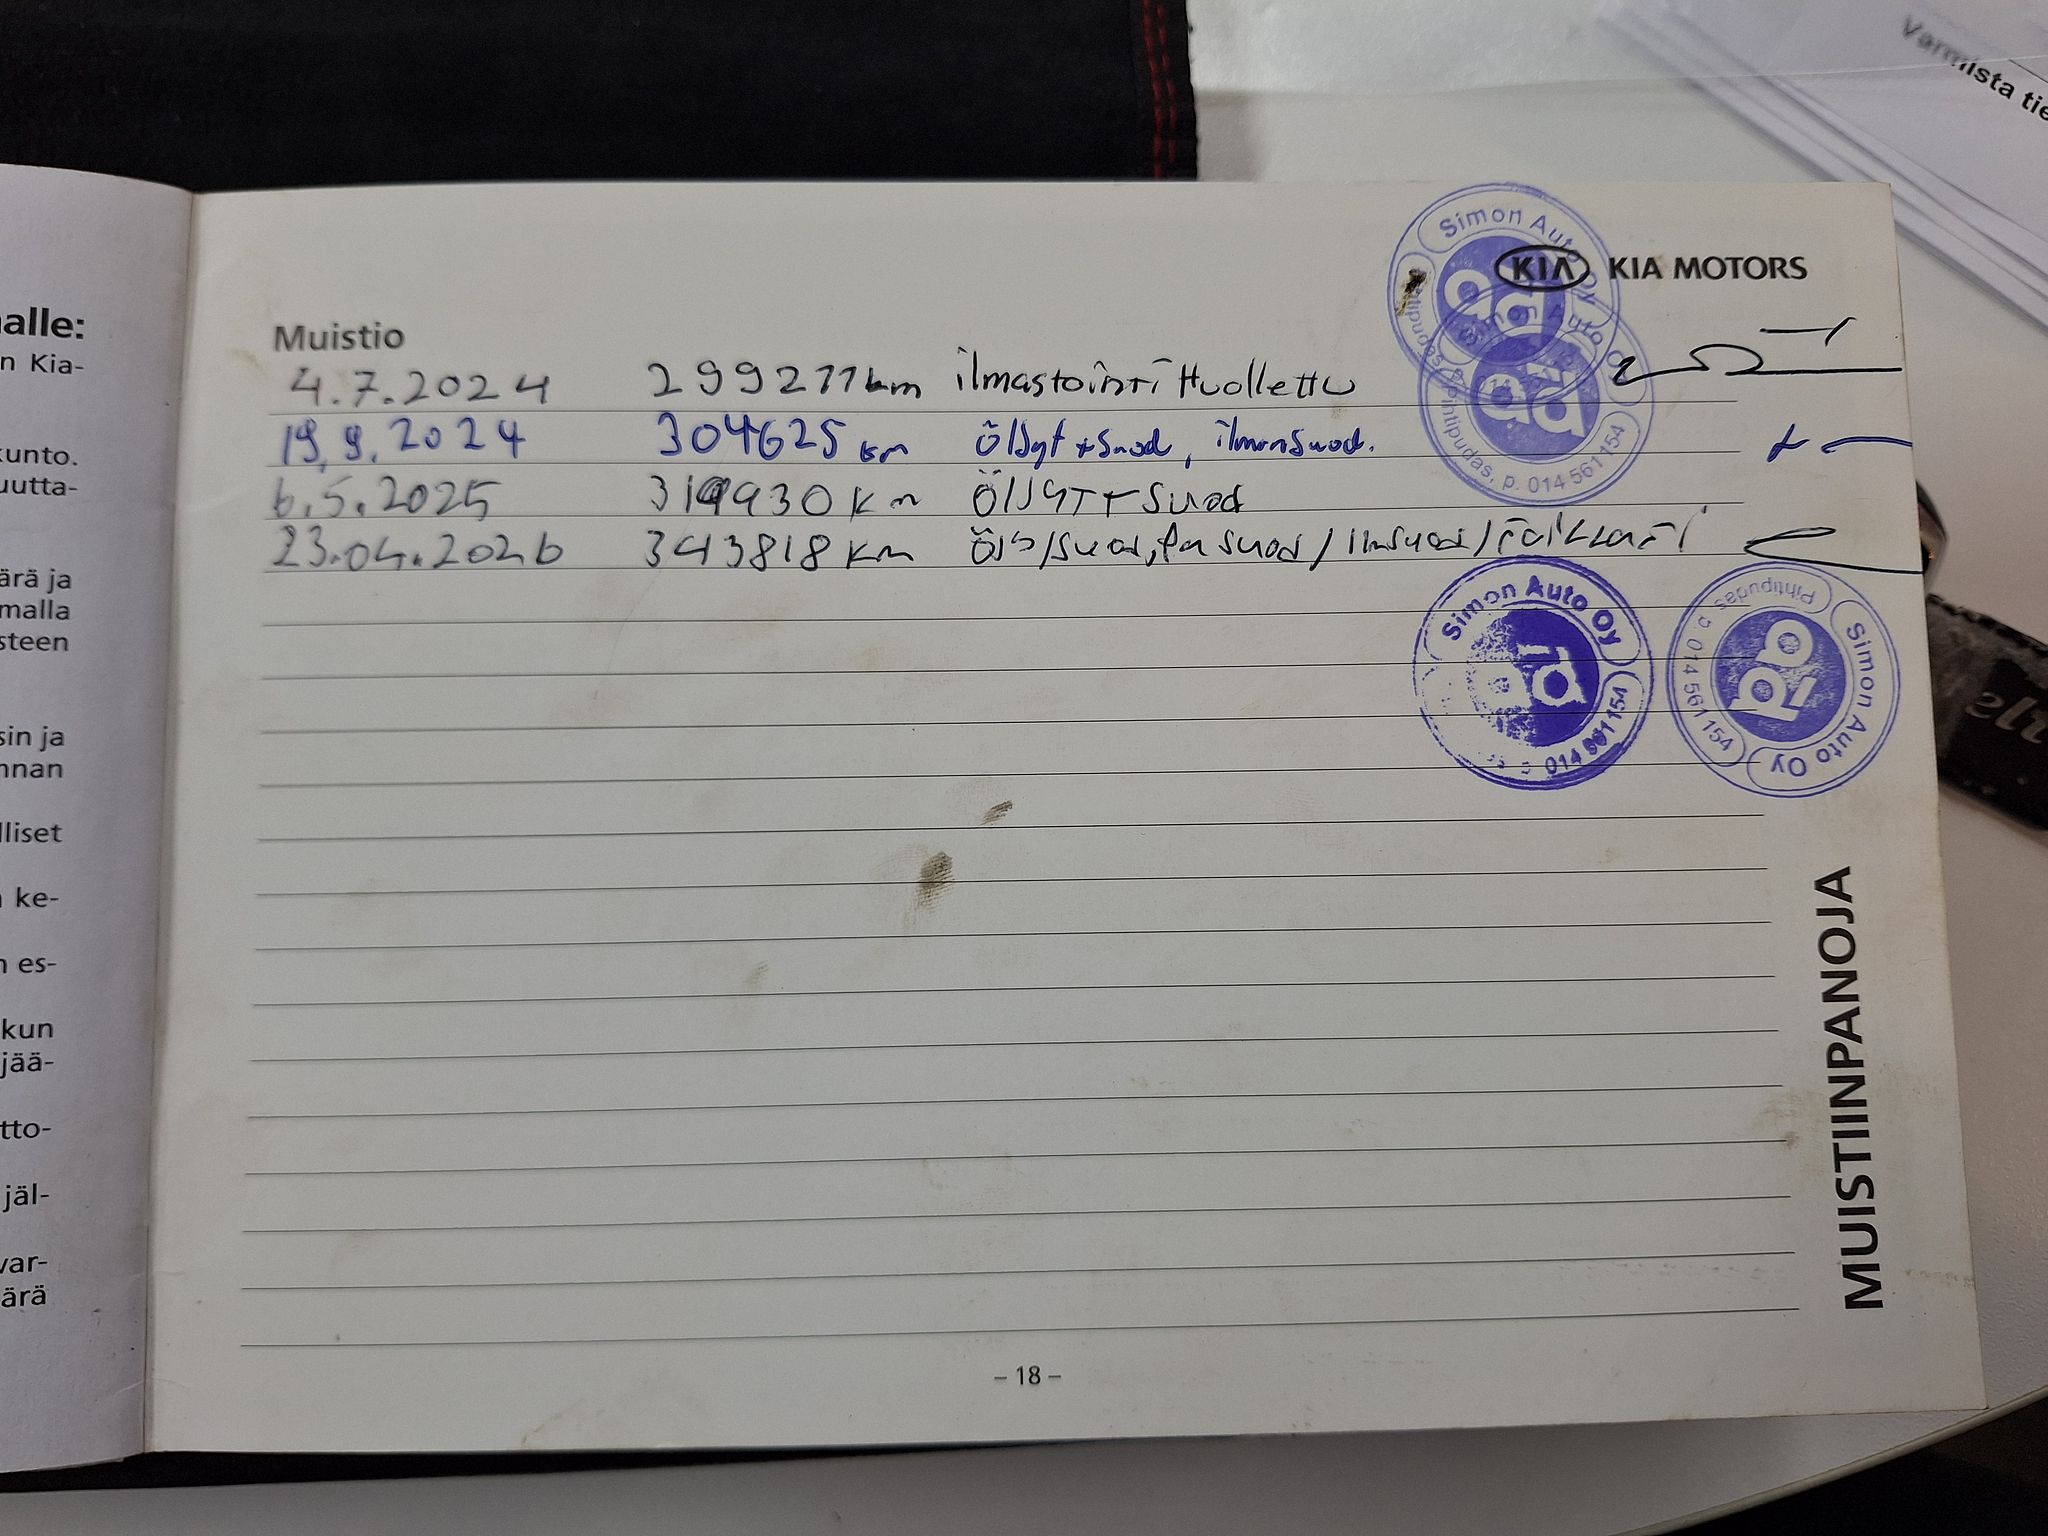 Varmista tie
alle:
n Kia-
kunto.
uutta-
ärä ja
malla
steen
sin ja
nnan
lliset
ke-
n es-
kun
jää-
tto-
jäl-
var-
ärä
KIA KIA MOTORS
Simon Auto Oy
Pihtipudas
Simon Auto Oy
Pihtipudas, p. 014 561154
Muistio
4.7.2024 299277km ilmastointi Huollettu
19.9.2024 304625 km Öljyt + suod, ilmansuod.
6.5.2025 km ÖljyT + Suod
23.04.2026 343818 km
Simon Auto Oy
p 014 561154
Simon Auto Oy
Pihtipudas
p 014 561154
MUISTIINPANOJA
– 18 –